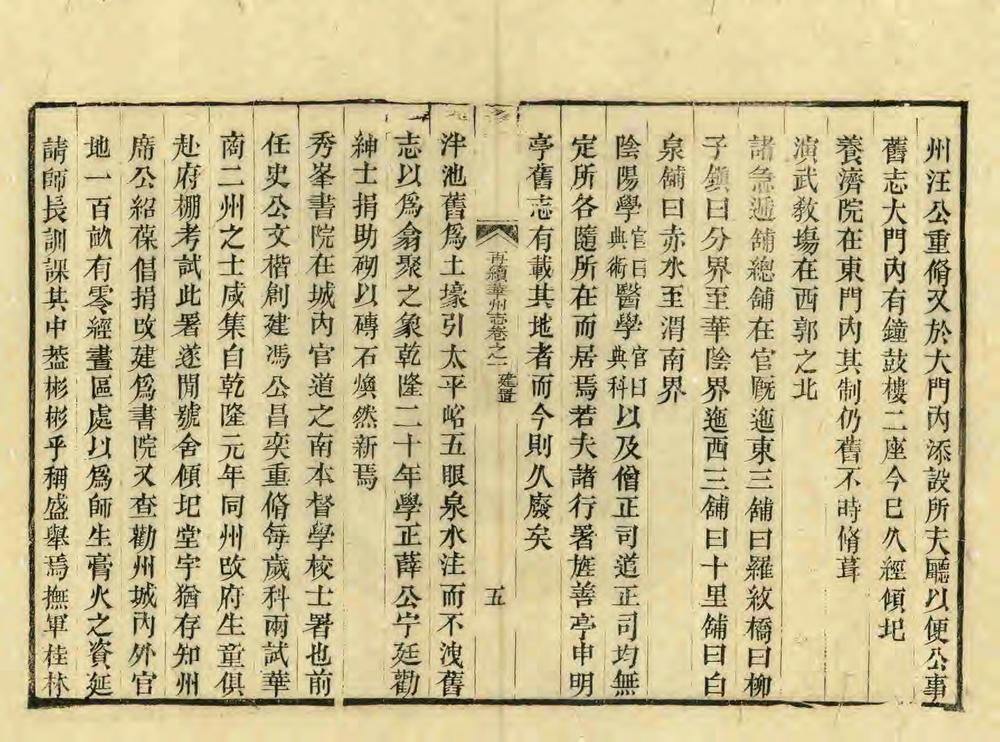 州汪公重脩又於大門內添設所夫廳以便公事
舊志大門內有鐘鼓樓二座今已久經傾圮
養濟院在東門內其制仍舊不時脩葺
演武敎塲在西郭之北
諸急遞舖總舖在官厩迤東三舖曰羅紋橋曰柳
子鎭曰分界至華陰界迤西三舖曰十里舖曰白
泉舖曰赤水至渭南界
陰陽學官曰典術醫學官曰典科以及僧正司道正司均無
定所各隨所在而居焉若夫諸行署旌善亭申明
亭舊志有載其地者而今則久廢矣
再續華州志卷之二 建置 五
泮池舊爲土壕引太平峪五眼泉水注而不洩舊
志以爲翕聚之象乾隆二十年學正薛公宁廷勸
紳士捐助砌以磚石煥然新焉
秀峯書院在城內官道之南本督學校士署也前
任史公文楷創建馮公昌奕重脩每歲科兩試華
商二州之士咸集自乾隆元年同州改府生童俱
赴府棚考試此署遂閒號舍傾圮堂宇猶存知州
席公紹葆倡捐改建爲書院又查勸州城內外官
地一百畝有零經畫區處以爲師生膏火之資延
請師長訓課其中葢彬彬乎稱盛舉焉撫軍桂林